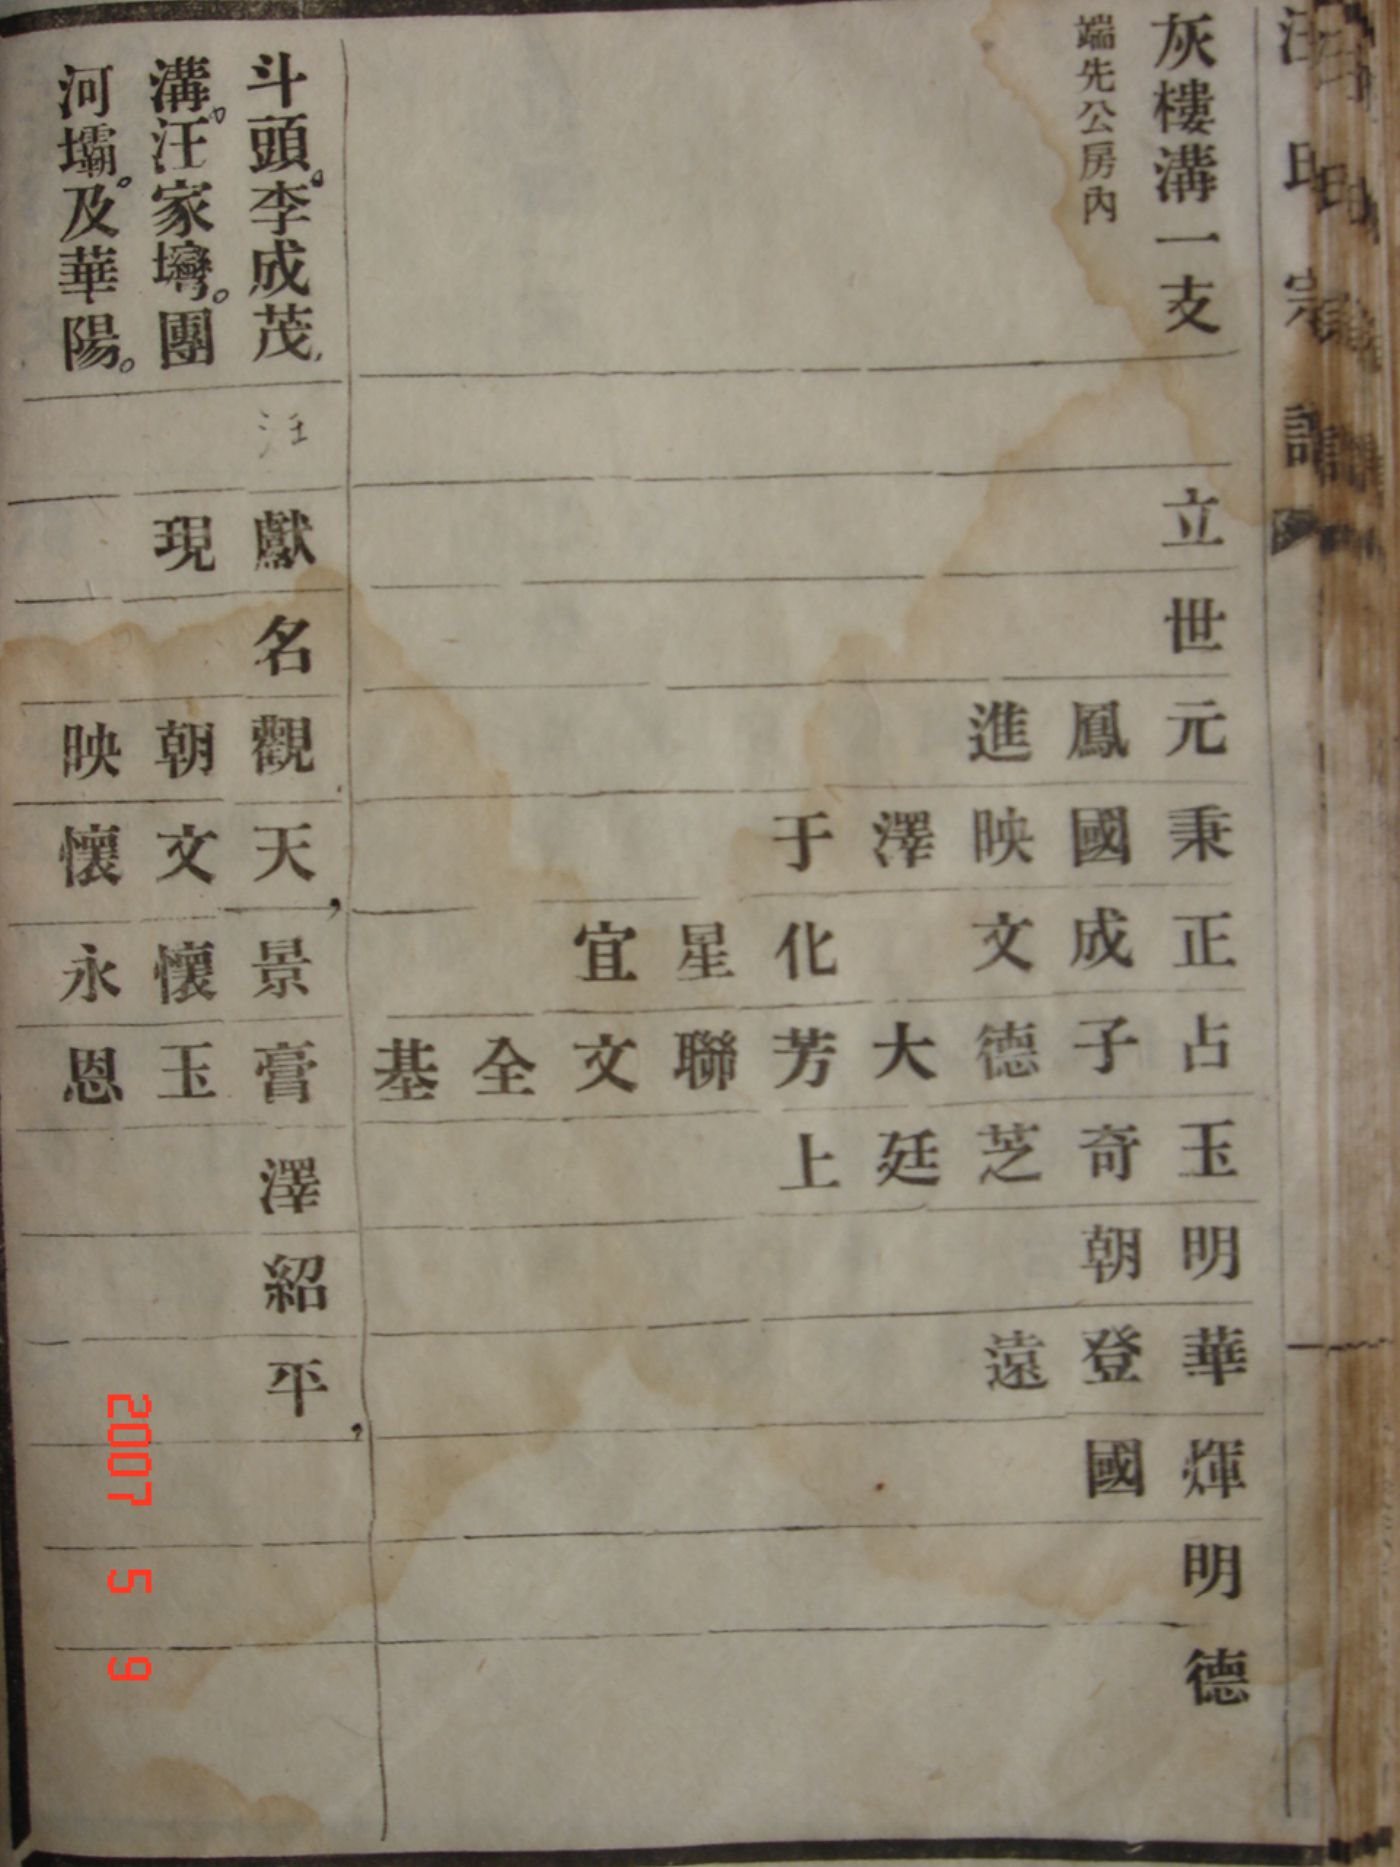 汪氏宗譜
灰樓溝一支
立世元秉正占玉明華輝明德
端先公房內
鳳國成子奇朝登國
進映文德芝遠
澤大廷
于化芳上
星聯
宜文
全
基
斗頭。李成茂
汪
獻名觀天，景膏澤紹平，
溝。汪家灣。團
現朝文懷玉
河壩。及華陽。
映懷永恩
2007 5 9